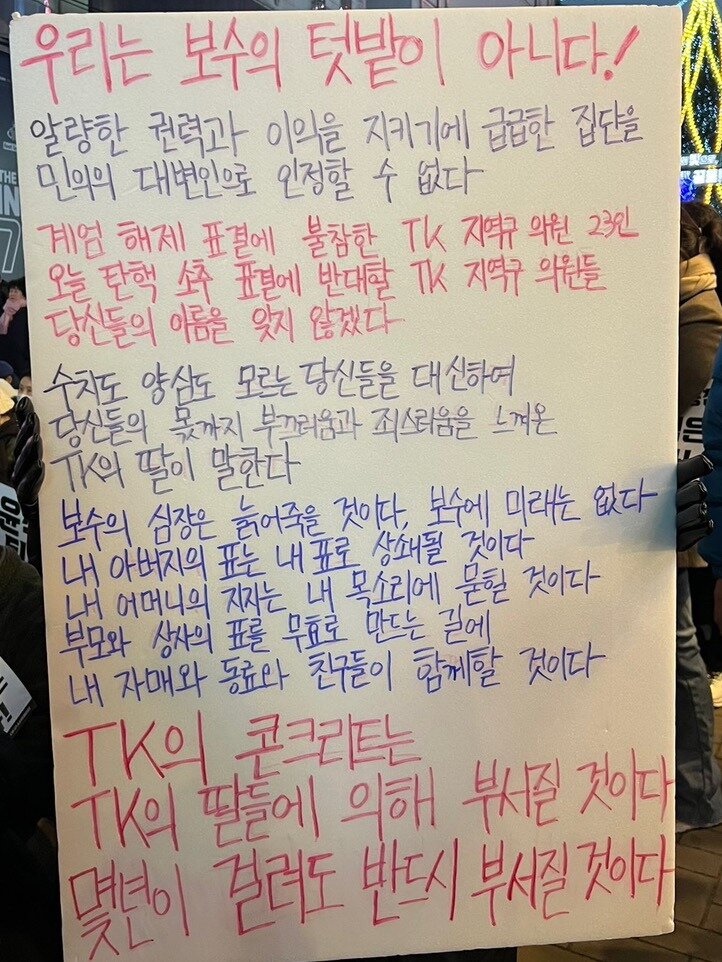 우리는 보수의 텃밭이 아니다!
알량한 권력과 이익을 지키기에 급급한 집단을
민의의 대변인으로 인정할 수 없다
계엄 해제 표결에 불참한 TK 지역구 의원 23인
오늘 탄핵 소추 표결에 반대할 TK 지역구 의원들
당신들의 이름을 잊지 않겠다
수치도 양심도 모르는 당신들을 대신하여
당신들의 몫까지 부끄러움과 죄스러움을 느껴온
TK의 딸이 말한다
보수의 심장은 늙어죽을 것이다, 보수에 미래는 없다
내 아버지의 표는 내 표로 상쇄될 것이다
내 어머니의 지지는 내 목소리에 묻힐 것이다
부모와 상사의 표를 무효로 만드는 길에
내 자매와 동료와 친구들이 함께할 것이다
TK의 콘크리트는
TK의 딸들에 의해 부서질 것이다
몇년이 걸려도 반드시 부서질 것이다
THE
IN
7